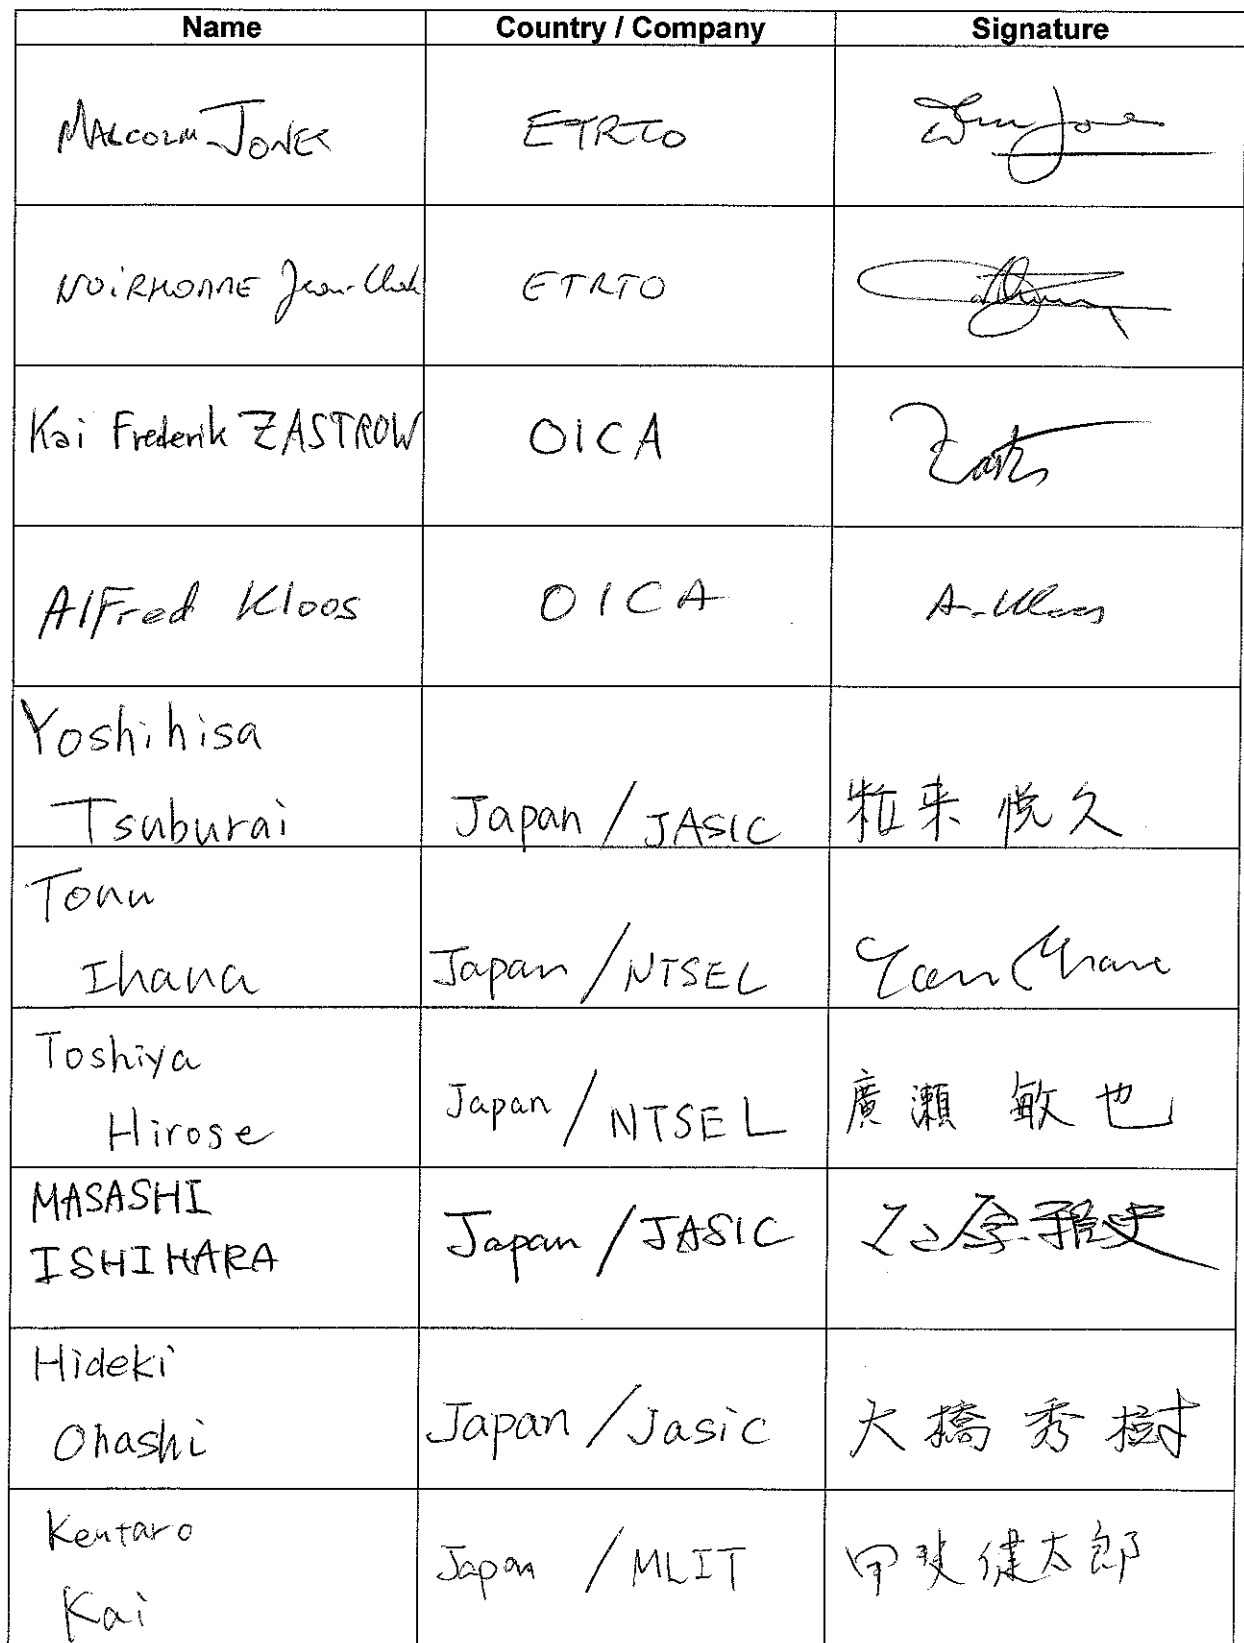 Name Country / Company Signature
MALCOLM JONES ETRTO
NOIRHOMME ETRTO
Kai Frederik ZASTROW OICA
Alfred Kloos OICA A. Kloos
Yoshihisa
Tsuburai Japan / JASIC 粒来 悦久
Toru
Ihara Japan / NTSEL
Toshiya
Hirose Japan / NTSEL 廣瀬 敏也
MASASHI
ISHIHARA Japan / JASIC 石原雅史
Hideki
Ohashi Japan / Jasic 大橋秀樹
Kentaro
Kai Japan / MLIT 甲斐健太郎